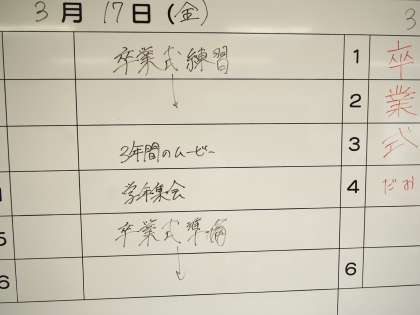 3月17日(金)
3
卒業式練習
1
卒
2
業
3年間のムービー
3
式
学年集会
4
だお
5
卒業式準備
6
6